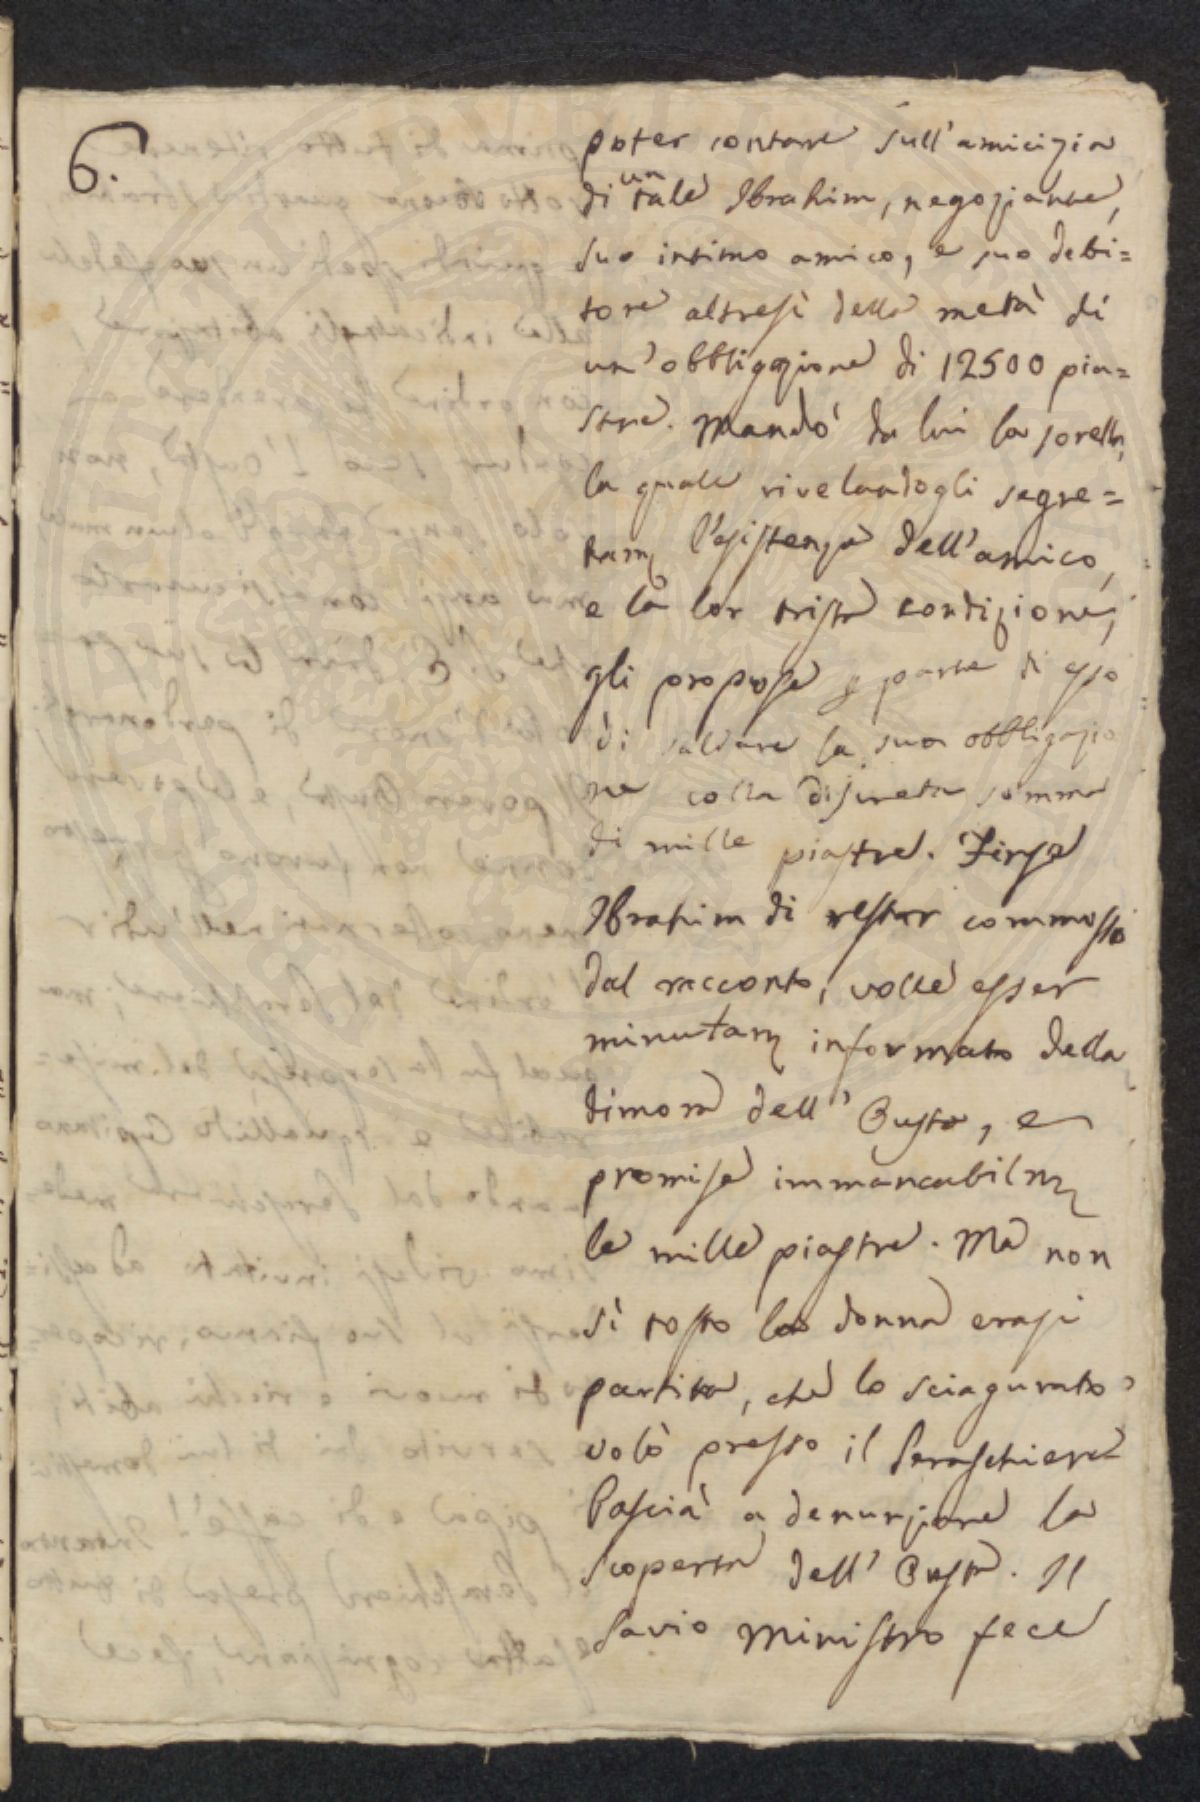 6.
poter contare sull'amicizia
di un tale Ibrahim, negoziante,
suo intimo amico, e suo debi=
tore altresì della metà di
un'obbligazione di 12500 pia=
stre. Mandò da lui la sorella,
la quale rivelandogli segre=
tam l'esistenza dell'amico,
e la lor trista condizione,
gli propose p parte di esso
di saldare la sua obbligazio
ne colla discreta somma
di mille piastre. Finse
Ibrahim di restar commosso
dal racconto, volle esser
minutam informato della
dimora dell' Oustà, e
promise immancabilm
le mille piastre. Ma non
sì tosto la donna erasi
partita, che lo sciagurato
volò presso il Seraschiere
Pascià a denunziare la
scoperta dell' Oustà. Il
Savio Ministro fece